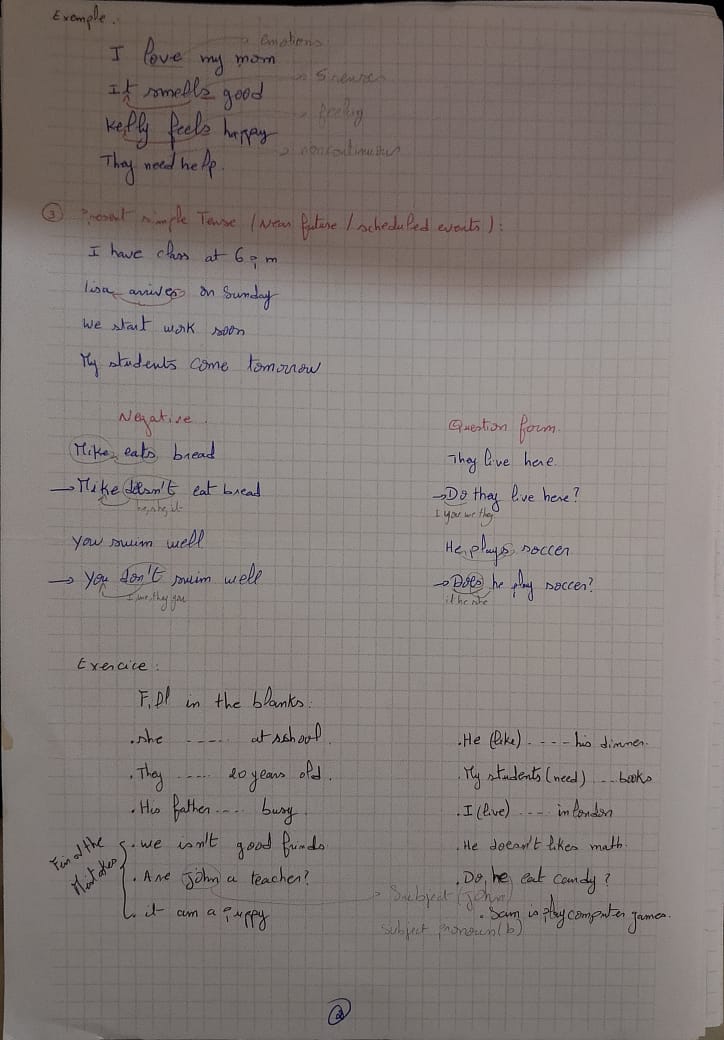 Exemple.
I love my mom → emotions
It smells good → Senses
Kelly feels happy → feeling
They need help. → noncontinuous
③ Present simple Tense (Near future / scheduled events):
I have class at 6 pm
lisa arrives on Sunday
we start work soon
My students come tomorrow
Negative.
Mike eats bread
→ Mike doesn't eat bread
he, she, it
you swim well
→ you don't swim well
I, we, they, you
Question form.
They live here.
→ Do they live here?
I you we they
He plays soccer
→ Does he play soccer?
it he she
Exercice:
Fill in the blanks:
. she ..... at school.
. They ..... 20 years old.
. His father .... busy
Find the Mistakes
. we isn't good friends
. Are john a teacher? → Snebject (john)
subject pronoun (b)
. it am a puppy
. He (like) .... his dinner.
. My students (need) ... books
. I (live) .... in london
. He doesn't likes math.
. Do, he eat candy?
. Sam is play computer games.
②